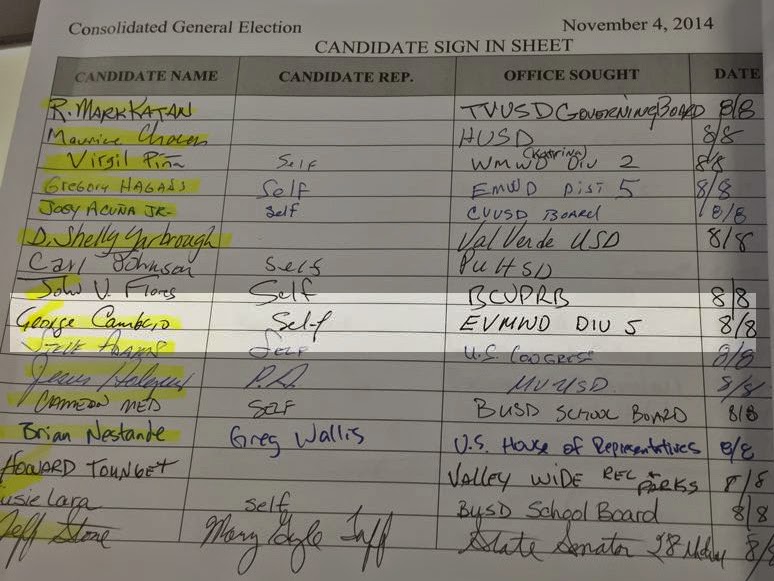 Consolidated General Election November 4, 2014
CANDIDATE SIGN IN SHEET
CANDIDATE NAME CANDIDATE REP. OFFICE SOUGHT DATE
R. MARK KATAN TVUSD GOVERNING BOARD 8/8
Maurice HUSD 8/8
Virgil Piña Self WMWD (Katrina) DIV 2 8/8
Gregory HAGANS Self EMWD DIST 5 8/8
JOEY ACUÑA JR- Self CVUSD BOARD 8/8
D. Shelly Yarbrough Val Verde USD 8/8
Carl Johnson Self PUHSD
John V. Flores Self BCVPRB 8/8
George Cambero Self EVMWD DIV 5 8/8
SELF U.S. CONGRESS 8/8
Jesus MVUSD 8/8
CAMERON SELF BUSD SCHOOL BOARD 8/8
Brian Nestande Greg Wallis U.S. House of Representatives 8/8
HOWARD TOUNGET VALLEY WIDE REC + PARKS 8/8
usie Lara self BUSD School Board 8/8
Jeff Stone Mary State Senator 28 8/8